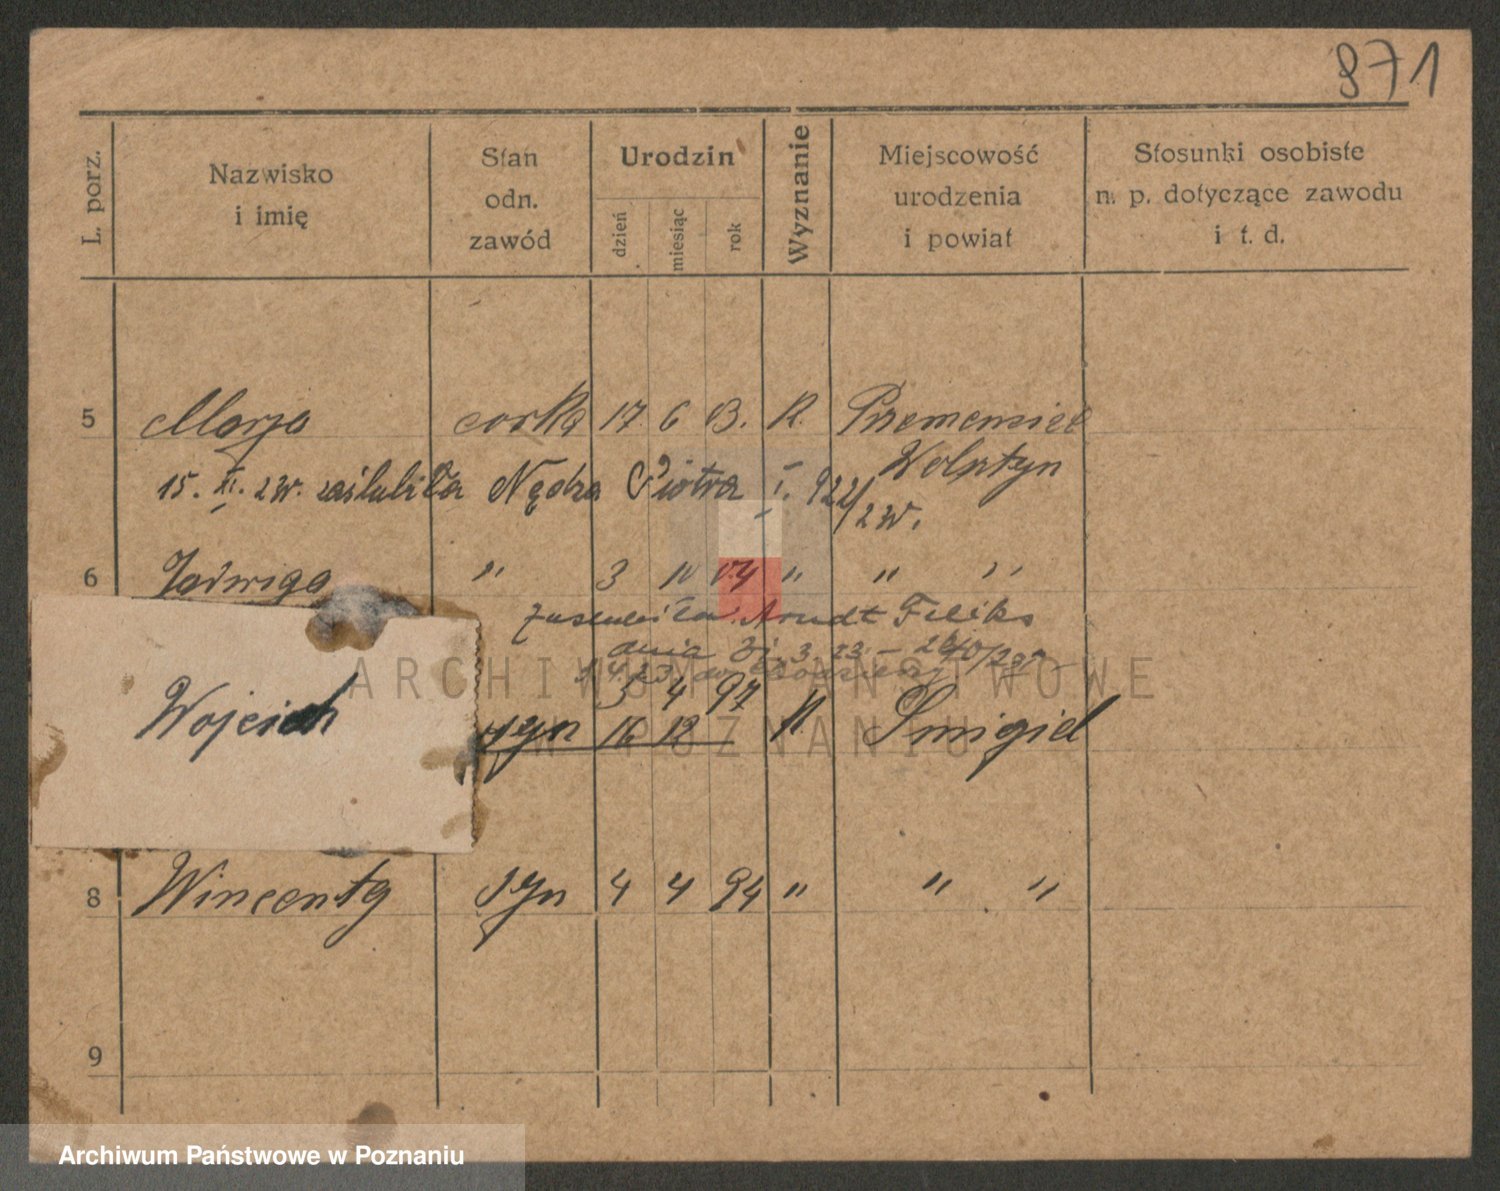 871
L. porz.
Nazwisko
i imię
Stan
odn.
zawód
Urodzin
dzień
miesiąc
rok
Wyznanie
Miejscowość
urodzenia
i powiat
Stosunki osobiste
n. p. dotyczące zawodu
i t. d.
5 Marja corka 17 6 R.
Wolsztyn
15. XI. zaślubiła Nędza Piotra I. 922/
6 Jadwiga " 3 " " "
zaslubiła Arndt Feliks
dnia 3. 23 -
5 4 97
Wojciech syn 16 12 Smigiel
8 Wincenty syn 4 4 94 " " "
9
ARCHIWUM PAŃSTWOWE
W POZNANIU
Archiwum Państwowe w Poznaniu